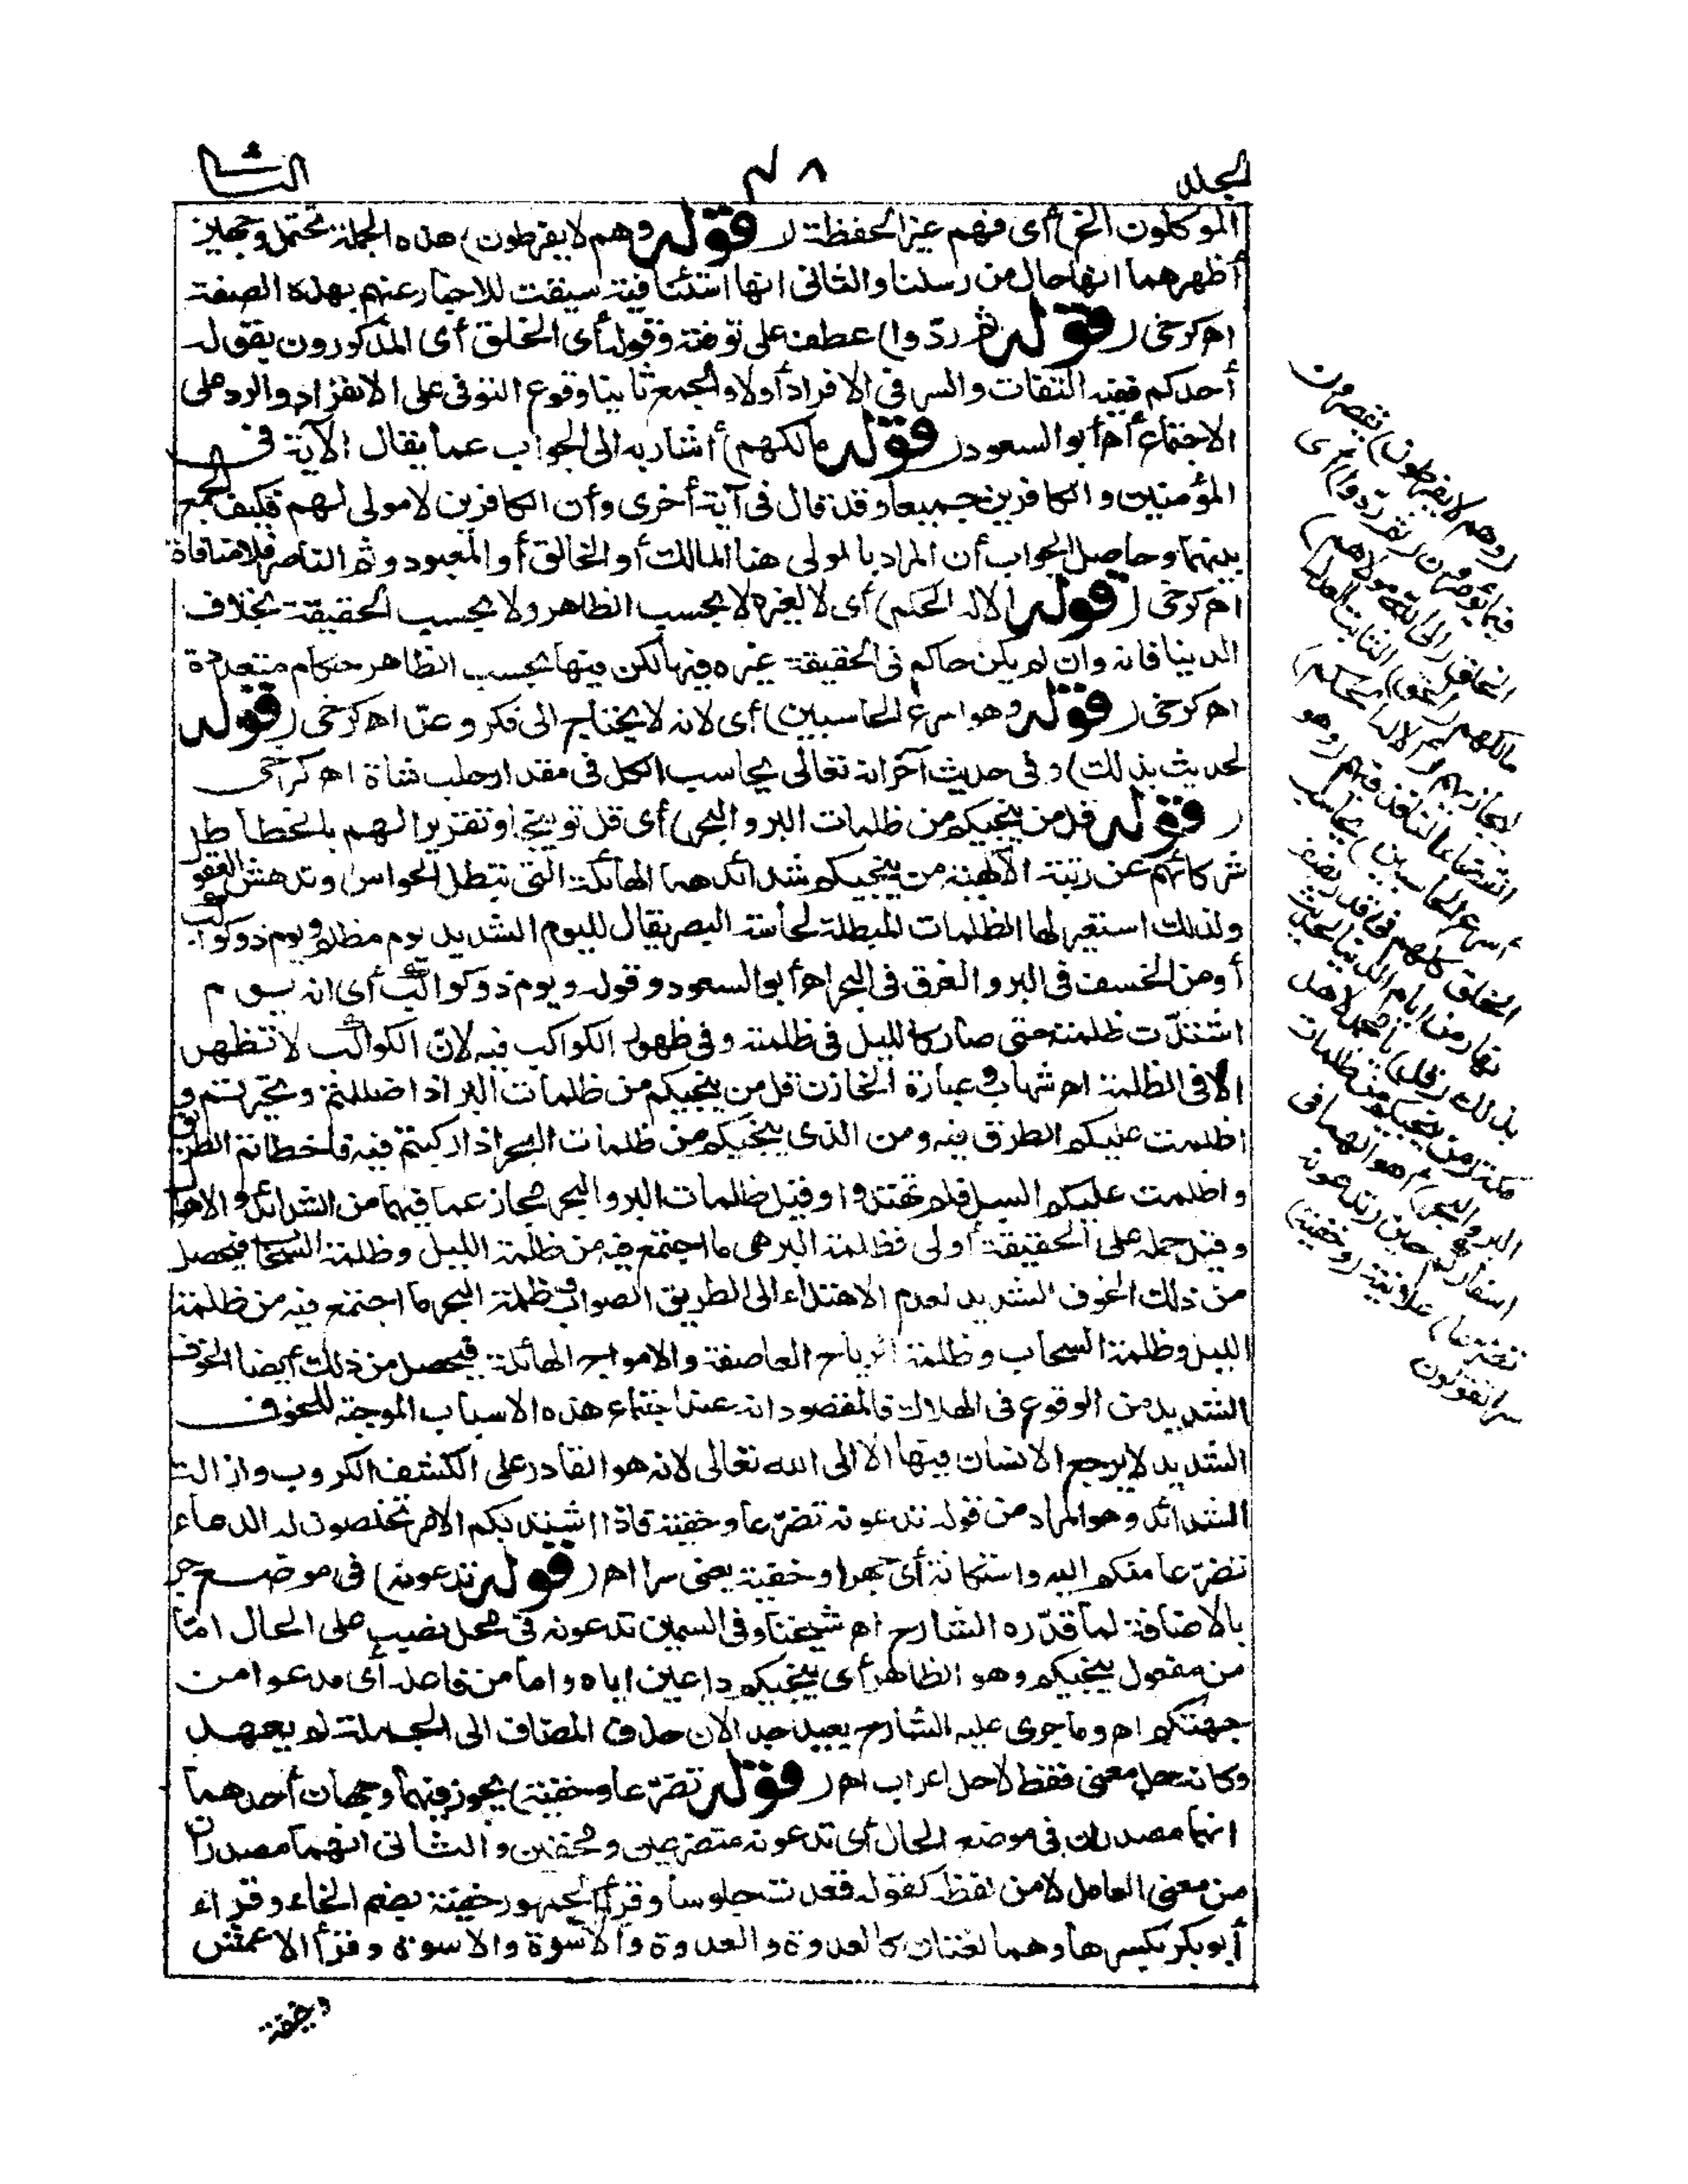 المجلد
٤٨
الثانى
الموكلون الخ) أى فهم غير الحفظة (قوله وهم لا يفرطون) هذه الجملة تحتمل وجهين
أظهرهما انها حال من رسلنا والثانى انها استئنافية سيقت للاخبار عنهم بهذه الصفة
اه كرخى (قوله ثم ردّوا) عطف على توفته وقوله أى الخلق أى المذكورون بقوله
أحدكم ففيه التفات والسر فى الافراد أولا والجمع ثانيا وقوع التوفى على الانفراد والرد على
الاجتماع اه أبو السعود (قوله مالكهم) أشار به الى الجواب عما يقال الآية فى
المؤمنين والكافرين جميعا وقد قال فى آية أخرى وأن الكافرين لا مولى لهم فكيف الجمع
بينهما وحاصل الجواب أن المراد بالمولى هنا المالك أو الخالق أو المعبود وثم الناصر فلا منافاة
اه كرخى (قوله ألا له الحكم) أى لا لغيره لا بحسب الظاهر ولا بحسب الحقيقة بخلاف
الدنيا فانه وان لم يكن حاكم فى الحقيقة غيره فيها لكن فيها بحسب الظاهر حكام متعددة
اه كرخى (قوله وهو اسرع الحاسبين) أى لانه لا يحتاج الى فكر وعدّ اه كرخى (قوله
لحديث بذلك) وفى حديث آخر انه تعالى يحاسب الكل فى مقدار حلب شاة اه كرخى
(قوله قل من ينجيكم من ظلمات البر والبحر) أى قل توبيخا وتقريرا لهم بانحطاط
شركائهم عن رتبة الالهية من ينجيكم شدائدهما الهائلة التى تبطل الحواس وتدهش العقول
ولذلك استعير لها الظلمات المبطلة لحاسة البصر يقال لليوم الشديد يوم مظلم ويوم ذو كواكب
أو من الخسف فى البر والغرق فى البحر اه أبو السعود وقوله ويوم ذو كواكب أى انه يوم
اشتدّت ظلمته حتى صار كالليل فى ظلمته وفى ظهور الكواكب فيه لانّ الكواكب لا تظهر
الا فى الظلمة اه شهاب وعبارة الخازن قل من ينجيكم من ظلمات البر اذا ضللتم وتحيرتم و
اظلمت عليكم الطرق فيه ومن الذى ينجيكم من ظلمات البحر اذا ركبتم فيه فاخطأتم الطريق
واظلمت عليكم السبل فلم تهتدوا وقيل ظلمات البر والبحر مجاز عما فيهما من الشدائد والاهوال
وقيل حمله على الحقيقة أولى فظلمة البر هى ما اجتمع فيه من ظلمة الليل وظلمة السحاب فيحصل
من ذلك الخوف الشديد لعدم الاهتداء الى الطريق الصواب وظلمة البحر ما اجتمع فيه من ظلمة
الليل وظلمة السحاب وظلمة الرياح العاصفة والامواج الهائلة فيحصل من ذلك أيضا الخوف
الشديد من الوقوع فى الهلاك فالمقصود انه عند اجتماع هذه الاسباب الموجبة للخوف
الشديد لا يرجع الانسان فيها الا الى الله تعالى لانه هو القادر على الكشف الكروب وازالة
الشدائد وهو المراد من قوله تدعونه تضرّعا وخفية فاذا اشتد بكم الامر تخلصون له الدعاء
تضرّعا منكم اليه واستكانة أى جهرا وخفية يعنى سرا اه (قوله تدعونه) فى موضع جر
بالاضافة لما قدّره الشارح اه شيخنا وفى السمين تدعونه فى محل نصب على الحال امّا
من مفعول ينجيكم وهو الظاهر أى ينجيكم داعين اياه واما من فاعله أى مدعوا من
جهتكم اه وما جرى عليه الشارح بعيد جدا لان حذف المضاف الى الجملة لم يعهد
وكانه حل معنى فقط لا حل اعراب اه (قوله تضرّعا وخفية) يجوز فيهما وجهان أحدهما
انهما مصدران فى موضع الحال أى تدعونه متضرعين ومخفين والثانى انهما مصدران
من معنى العامل لا من لفظه كقوله قعدت جلوسا وقرأ الجمهور خفية بضم الخاء وقراء
أبو بكر بكسرها وهما لغتان كالعدوة والعدوة والأسوة والاسوة وقرأ الاعمش
وخيفة
(وهم لا يفرطون) يقصرون
فيما يؤمرون (ثم ردوا) أى
الخلق (الى الله مولاهم)
مالكهم (الحق) الثابت العدل
ليجازيهم (ألا له الحكم)
القضاء النافذ فيهم (وهو
أسرع الحاسبين) يحاسب
الخلق كلهم فى قدر نصف
نهار من ايام الدنيا لحديث
بذلك (قل) يا محمد لاهل
مكة (من ينجيكم من ظلمات
البر والبحر) اهوالهما فى
اسفاركم حين (تدعونه
تضرعا) علانية (وخفية)
سرا تقولون